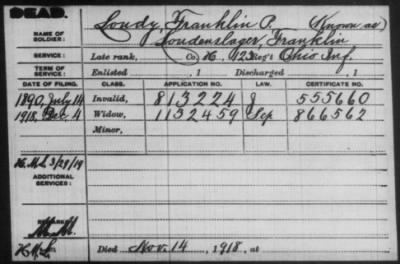 DEAD.
Loudy, Franklin P. (Known as)
NAME OF SOLDIER: Loudenslager, Franklin
SERVICE: Late rank, Co. K, 123 Reg't Ohio Inf.
TERM OF SERVICE: Enlisted , 1 Discharged , 1
DATE OF FILING. CLASS. APPLICATION NO. LAW. CERTIFICATE NO.
1890, July 14 Invalid, 813224 J 555660
1918, Dec. 4 Widow, 1132459 Sep 866562
Minor,
3/29/19
ADDITIONAL SERVICES:
REMARKS:
Died Nov. 14, 1918, at